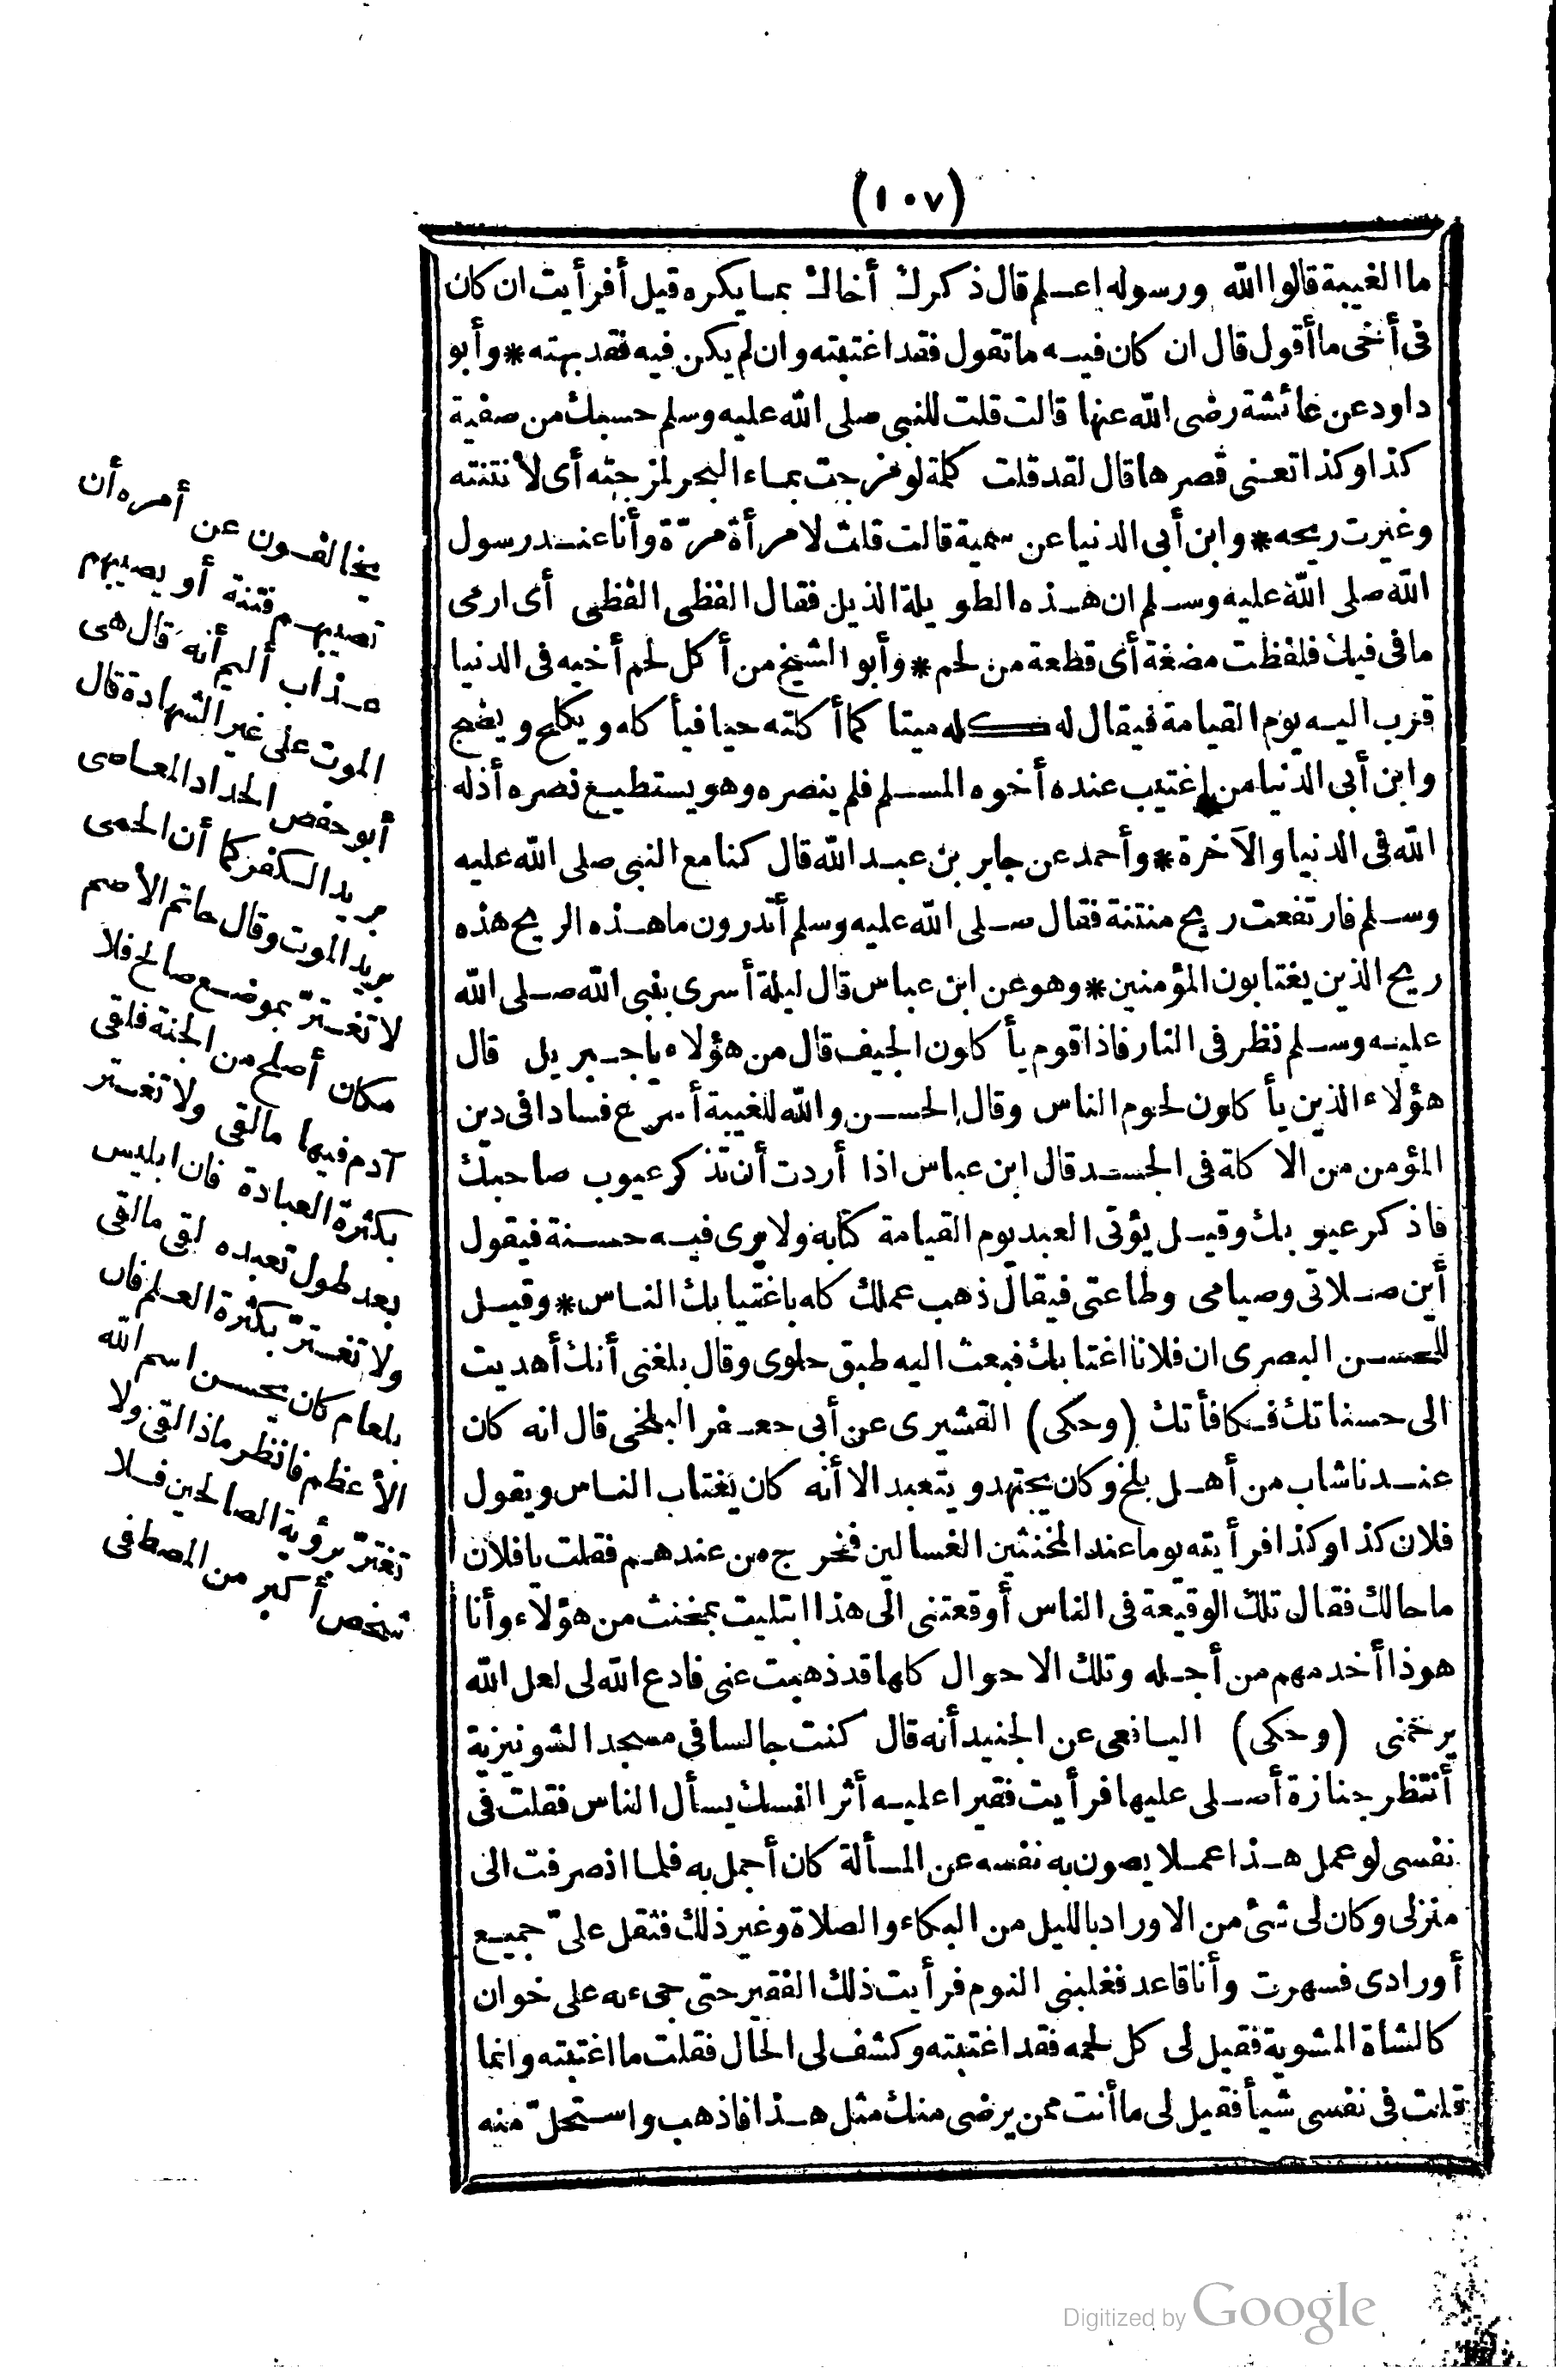 (١٠٧)
ما الغيبة قالوا الله ورسوله اعلم قال ذكرك أخاك بما يكره قيل أفرأيت ان كان
فى أخى ما أقول قال ان كان فيه ما تقول فقد اغتبته وان لم يكن فيه فقد بهته * وأبو
داود عن عائشة رضى الله عنها قالت قلت للنبى صلى الله عليه وسلم حسبك من صفية
كذا وكذا تعنى قصرها قال لقد قلت كلمة لو مزجت بماء البحر لمزجته أى لأنتنته
وغيرت ريحه * وابن أبى الدنيا عن سمية قالت قلت لامرأة مرّة وأنا عند رسول
الله صلى الله عليه وسلم ان هذه الطويلة الذيل فقال الفظى الفظى أى ارمى
ما فى فيك فلفظت مضغة أى قطعة من لحم * وأبو الشيخ من أكل لحم أخيه فى الدنيا
قرب اليه يوم القيامة فيقال له كله ميتا كما أكلته حيا فيأكله ويكلح ويضج
وابن أبى الدنيا من اغتيب عنده أخوه المسلم فلم ينصره وهو يستطيع نصره أذله
الله فى الدنيا والآخرة * وأحمد عن جابر بن عبد الله قال كنا مع النبى صلى الله عليه
وسلم فارتفعت ريح منتنة فقال صلى الله عليه وسلم أتدرون ما هذه الريح هذه
ريح الذين يغتابون المؤمنين * وهو عن ابن عباس قال ليلة أسرى بنبى الله صلى الله
عليه وسلم نظر فى النار فاذا قوم يأكلون الجيف قال من هؤلاء يا جبريل قال
هؤلاء الذين يأكلون لحوم الناس وقال الحسن والله للغيبة أسرع فسادا فى دين
المؤمن من الاكلة فى الجسد قال ابن عباس اذا أردت أن تذكر عيوب صاحبك
فاذكر عيوبك وقيل يؤتى العبد يوم القيامة كتابه ولا يرى فيه حسنة فيقول
أين صلاتى وصيامى وطاعتى فيقال ذهب عملك كله باغتيابك الناس * وقيل
للحسن البصرى ان فلانا اغتابك فبعث اليه طبق حلوى وقال بلغنى أنك أهديت
الى حسناتك فكافأتك (وحكى) القشيرى عن أبى جعفر البلخى قال انه كان
عندنا شاب من أهل بلخ وكان يجتهد ويتعبد الا أنه كان يغتاب الناس ويقول
فلان كذا وكذا فرأيته يوما عند المخنثين الغسالين فخرج من عندهم فقلت يا فلان
ما حالك فقال تلك الوقيعة فى الناس أوقعتنى الى هذا ابتليت بمخنث من هؤلاء وأنا
هوذا أخدمهم من أجله وتلك الاحوال كلها قد ذهبت عنى فادع الله لى لعل الله
يرحمنى (وحكى) اليافعى عن الجنيد أنه قال كنت جالسا فى مسجد الشونيزية
أنتظر جنازة أصلى عليها فرأيت فقيرا عليه أثر النسك يسأل الناس فقلت فى
نفسى لو عمل هذا عملا يصون به نفسه عن المسألة كان أجمل به فلما انصرفت الى
منزلى وكان لى شئ من الاوراد بالليل من البكاء والصلاة وغير ذلك فثقل علىّ جميع
أورادى فسهرت وأنا قاعد فغلبنى النوم فرأيت ذلك الفقير حتى جىء به على خوان
كالشاة المشوية فقيل لى كل لحمه فقد اغتبته وكشف لى الحال فقلت ما اغتبته وانما
قلت فى نفسى شيأ فقيل لى ما أنت ممن يرضى منك مثل هذا فاذهب واستحلّ منه
يخالفون عن أمره أن
تصيبهم فتنة أو يصيبهم
عذاب أليم أنه قال هى
الموت على غير الشهادة قال
أبو حفص الحداد المعاصى
بريد الكفر كما أن الحمى
بريد الموت وقال حاتم الأصم
لا تغترّ بموضع صالح فلا
مكان أصلح من الجنة فلقى
آدم فيها ما لقى ولا تغتر
بكثرة العبادة فان ابليس
بعد طول تعبده لقى ما لقى
ولا تغترّ بكثرة العلم فان
بلعام كان يحسن اسم الله
الأعظم فانظر ماذا لقى ولا
تغترّ برؤية الصالحين فلا
شخص أكبر من المصطفى
Digitized by Google